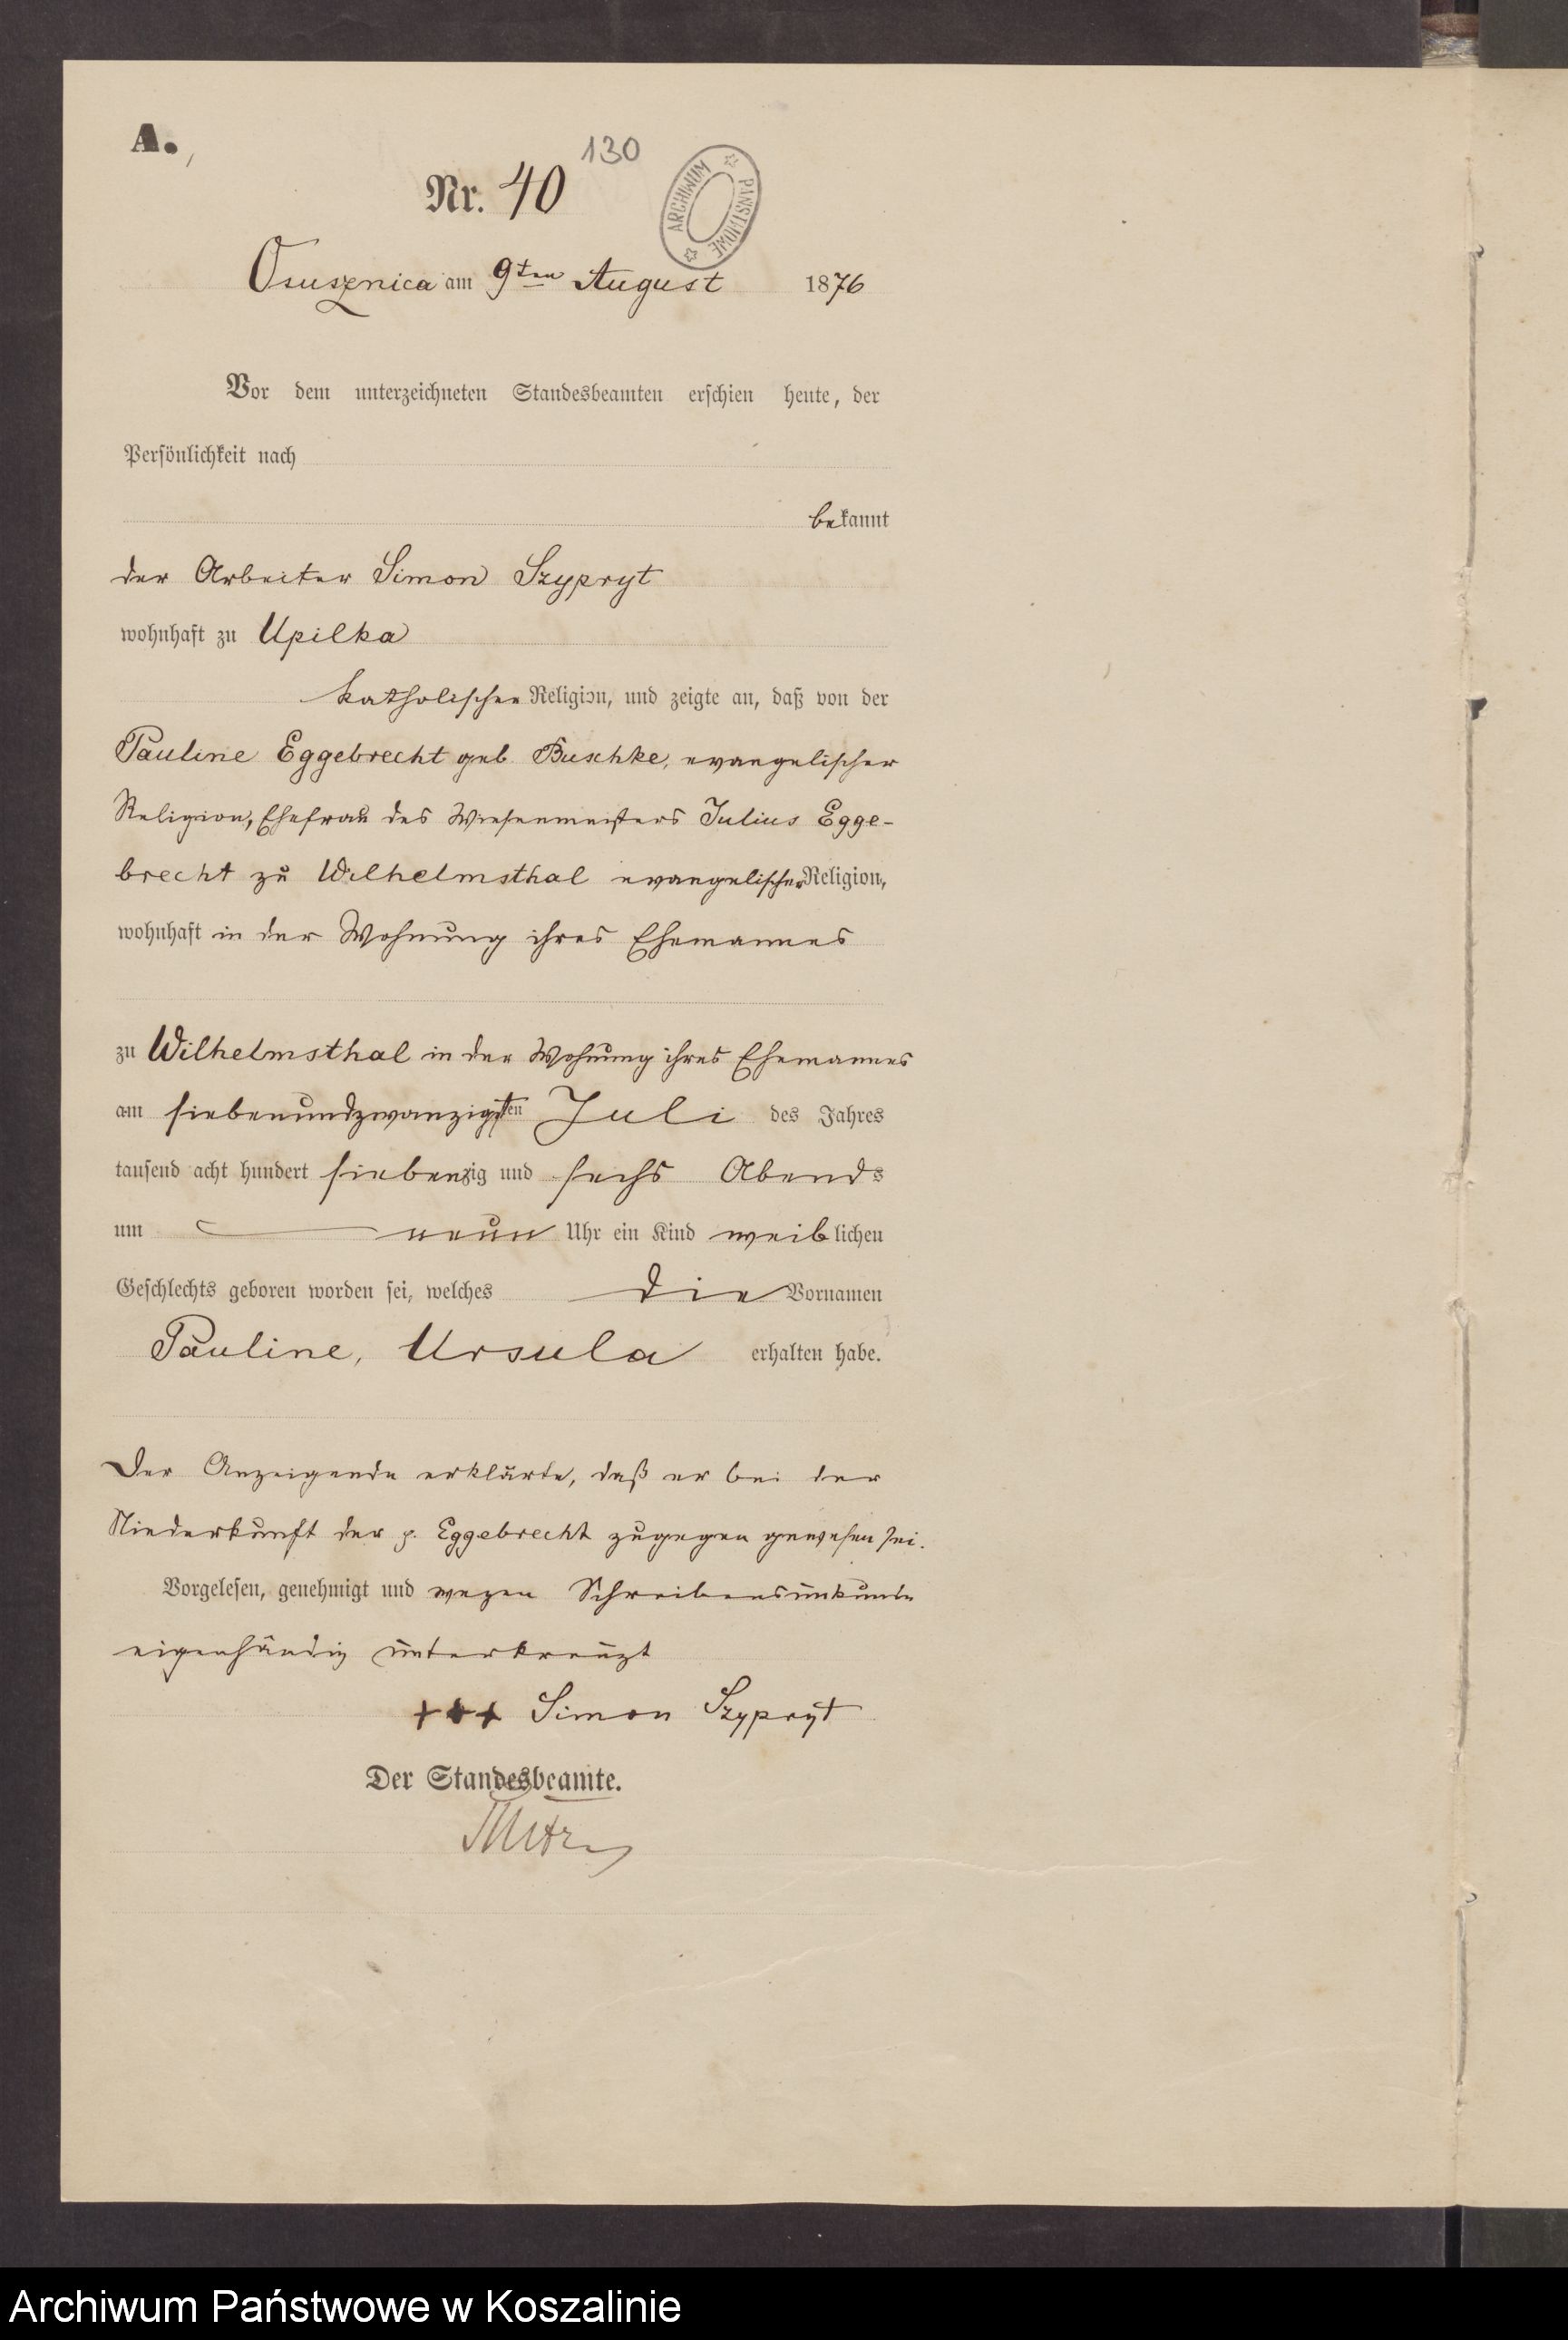 A.
130
Nr. 40
ARCHIWUM PAŃSTWOWE
Osusznica am 9ten August 1876
Vor dem unterzeichneten Standesbeamten erschien heute, der
Persönlichkeit nach
bekannt
der Arbeiter Simon Szypryt
wohnhaft zu Upilka
katholischer Religion, und zeigte an, daß von der
Pauline Eggebrecht geb. Buschke, evangelischer
Religion, Ehefrau des Wiesenmeisters Julius Egge-
brecht zu Wilhelmsthal evangelischer Religion,
wohnhaft in der Wohnung ihres Ehemannes
zu Wilhelmsthal in der Wohnung ihres Ehemannes
am siebenundzwanzigsten Juli des Jahres
tausend acht hundert siebenzig und sechs Abends
um neun Uhr ein Kind weiblichen
Geschlechts geboren worden sei, welches die Vornamen
Pauline, Ursula erhalten habe.
Der Anzeigende erklärte, daß er bei der
Niederkunft der p. Eggebrecht zugegen gewesen sei.
Vorgelesen, genehmigt und wegen Schreibensunkunde
eigenhändig unterkreuzt
+++ Simon Szypryt
Der Standesbeamte.
Archiwum Państwowe w Koszalinie